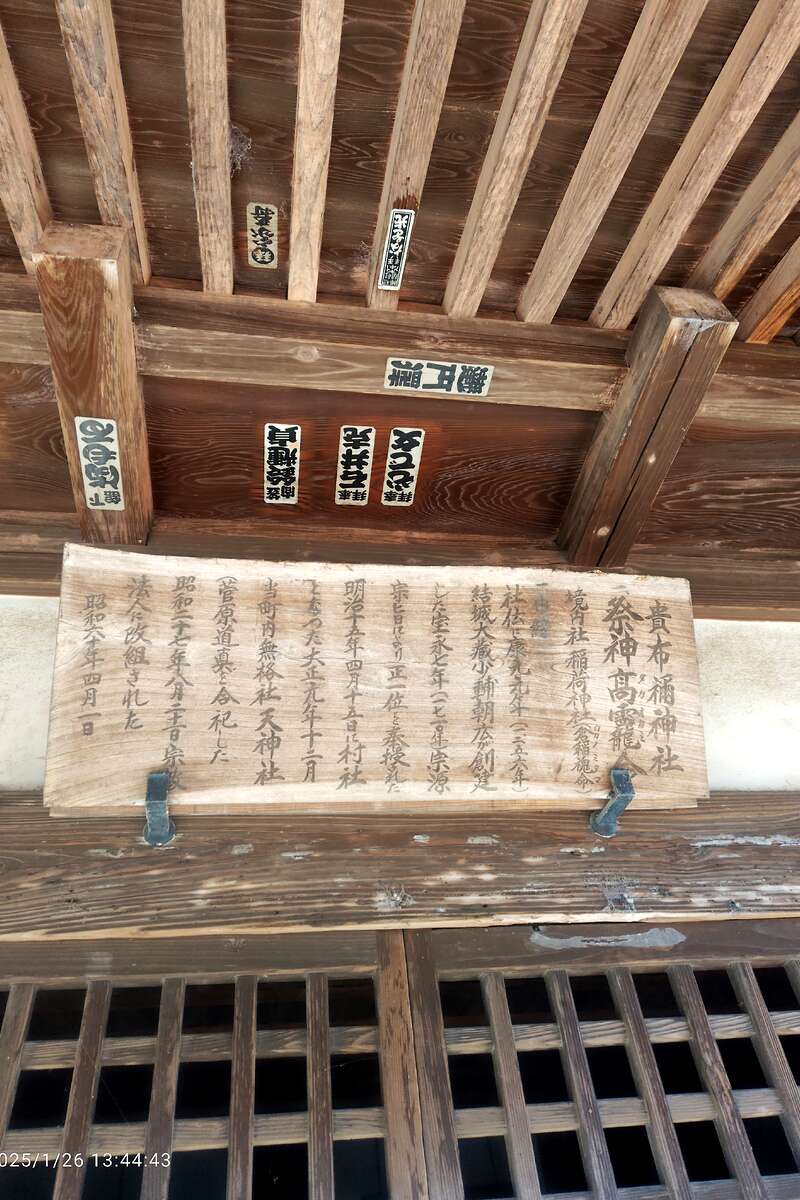 貴布禰神社
祭神 高龗命
タカオカミ
境内社 稲荷神社 倉稲魂命
社伝に康元元年(一二五六年)
結城大蔵少輔朝広が創建
した宝永七年(一七一〇年)宗源
宗旨により正一位を奉授された
明治十五年四月十五日に村社
となつた大正九年十二月
当町内無格社 天神社
(菅原道真)を合祀した
昭和二十七年八月二十一日宗教
法人に改組された
昭和六十年四月一日
石井克
2025/1/26 13:44:43